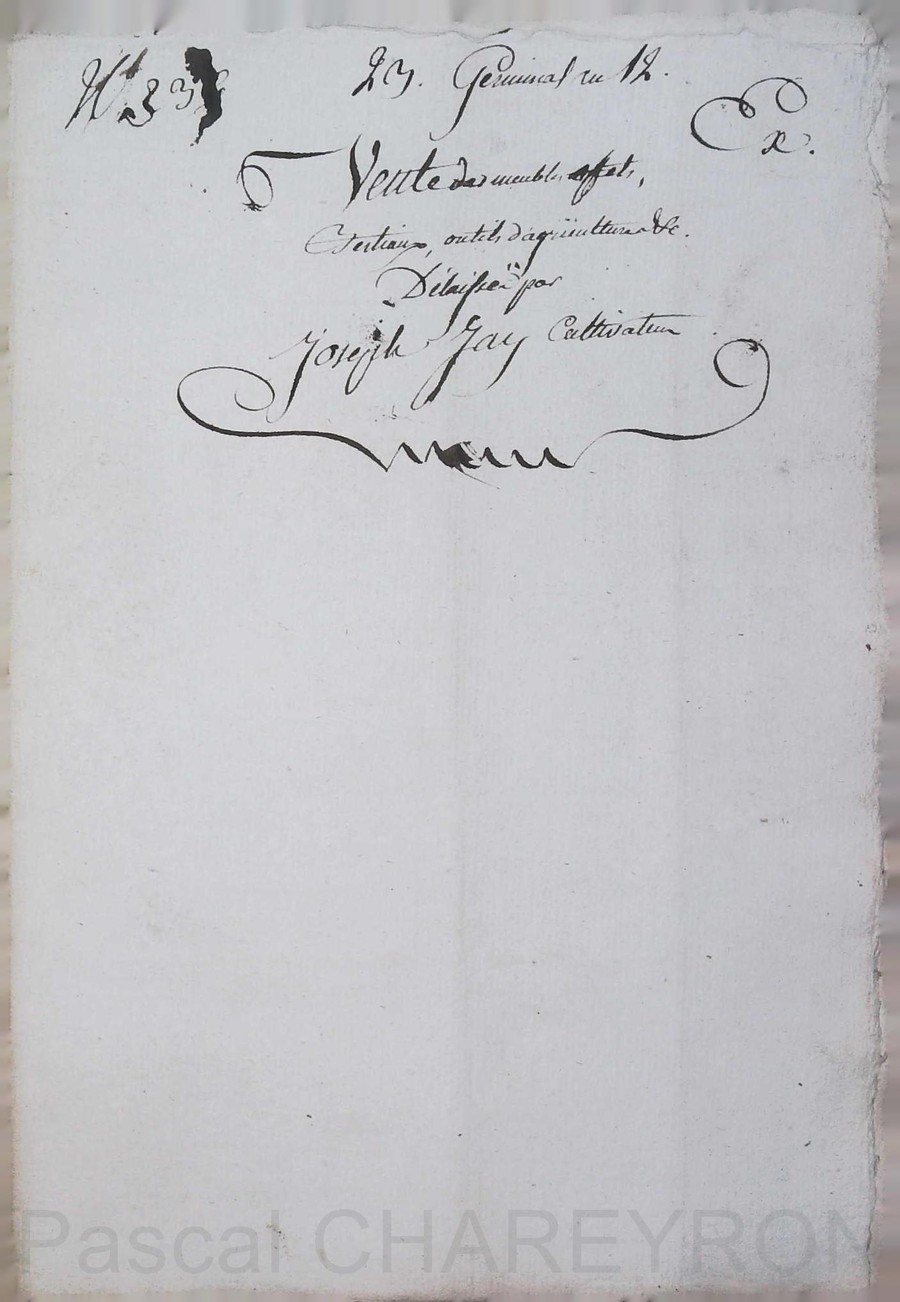 23. Germinal an 12.
Ex.
Vente des meubles, effets,
Bestiaux, outils d'agriculture &c.
Délaissés par
Joseph Jay Cultivateur
Pascal CHAREYRON